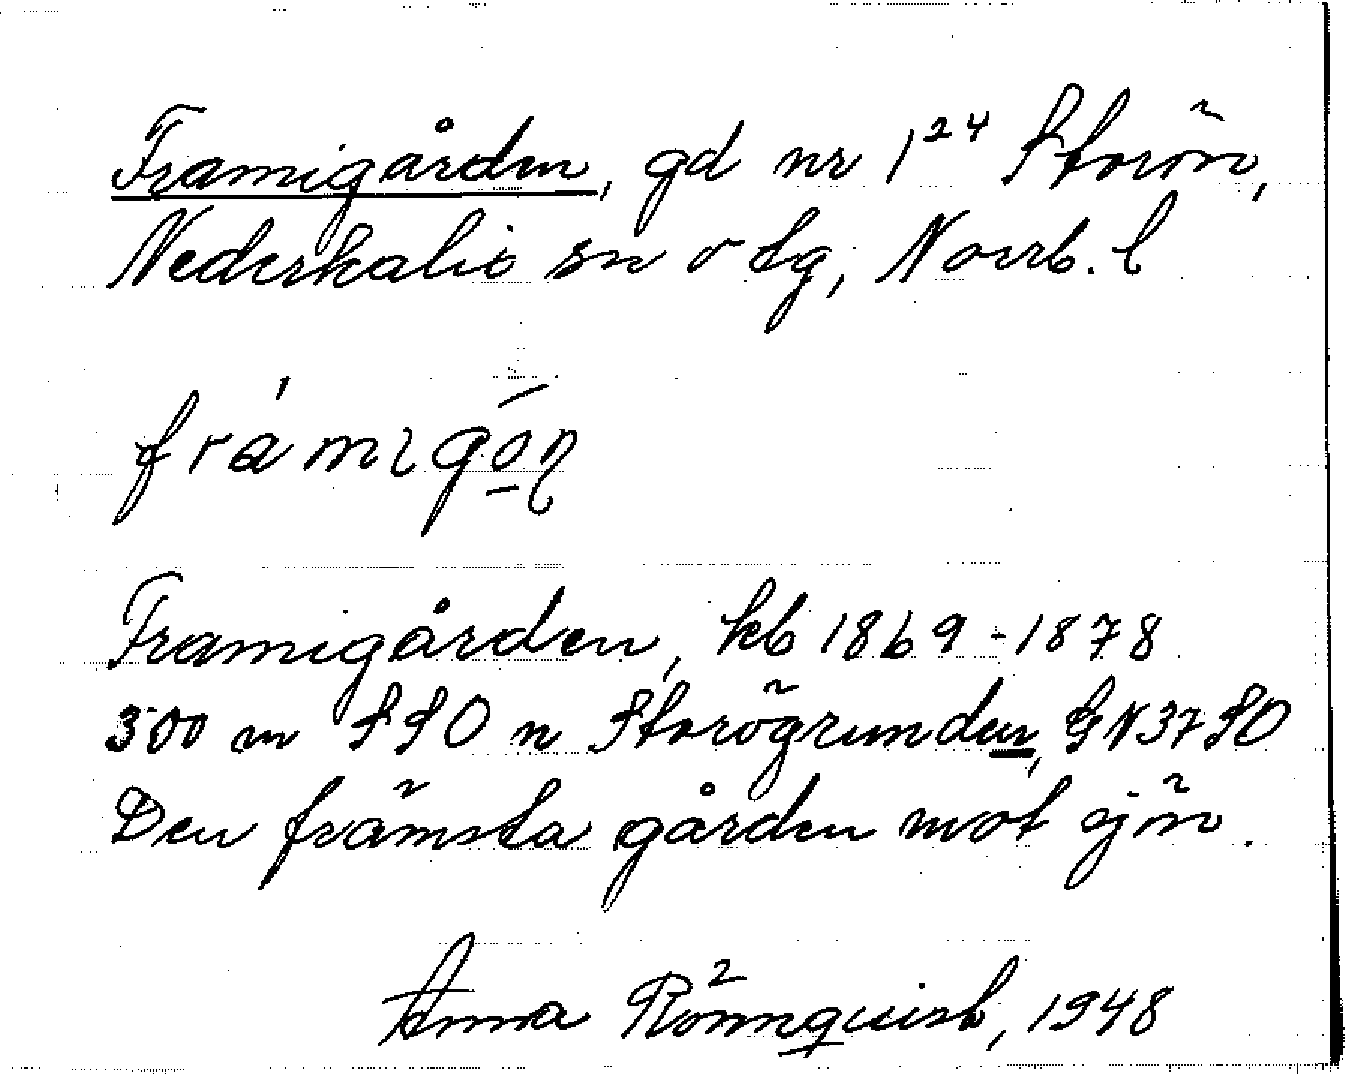 Framigården, gd nr 1²⁴ Storön,
Nederkalix sn o tg, Norrb. l
fràmıgọ́ṇ
Framigården, kb 1869-1878
300 m SSO n Storögrunden, GN37SO
Den främsta gården mot sjön.
Anna Rönnquist, 1948